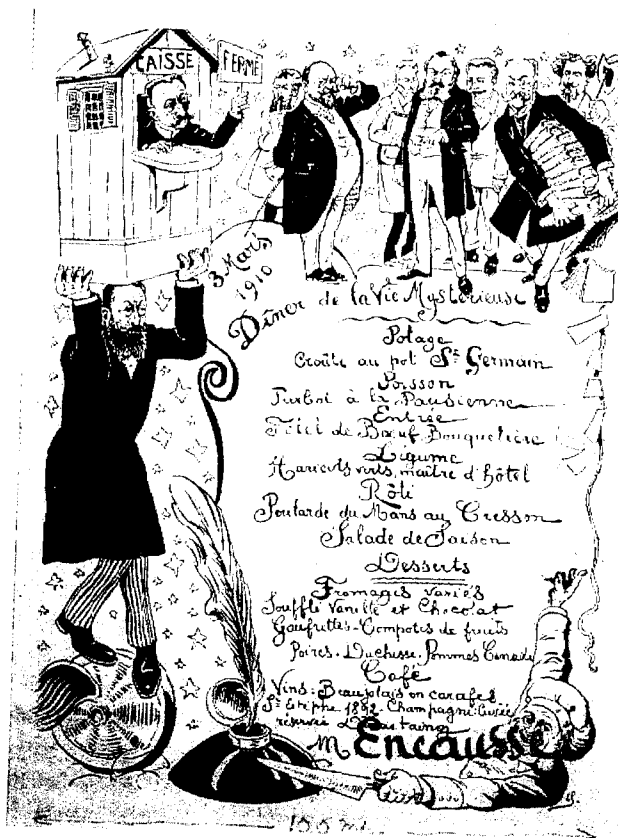 CAISSE
FERMÉ
3 Mars
1910
Dîner de la Vie Mystérieuse
Potage
Croûte au pot St Germain
Poisson
Turbot à la Parisienne
Entrée
Filet de Bœuf Bouquetière
Légume
Haricots verts, maître d'hôtel
Rôti
Poularde du Mans au Cresson
Salade de Saison
Desserts
Fromages variés
Soufflé Vanille et Chocolat
Gaufrettes-Compotes de fruits
Poires-Duchesse, Pommes Canada
Café
Vins: Beaujolais en carafes
St Estèphe 1892-Champagne Cuvée
réservée
M Encausse